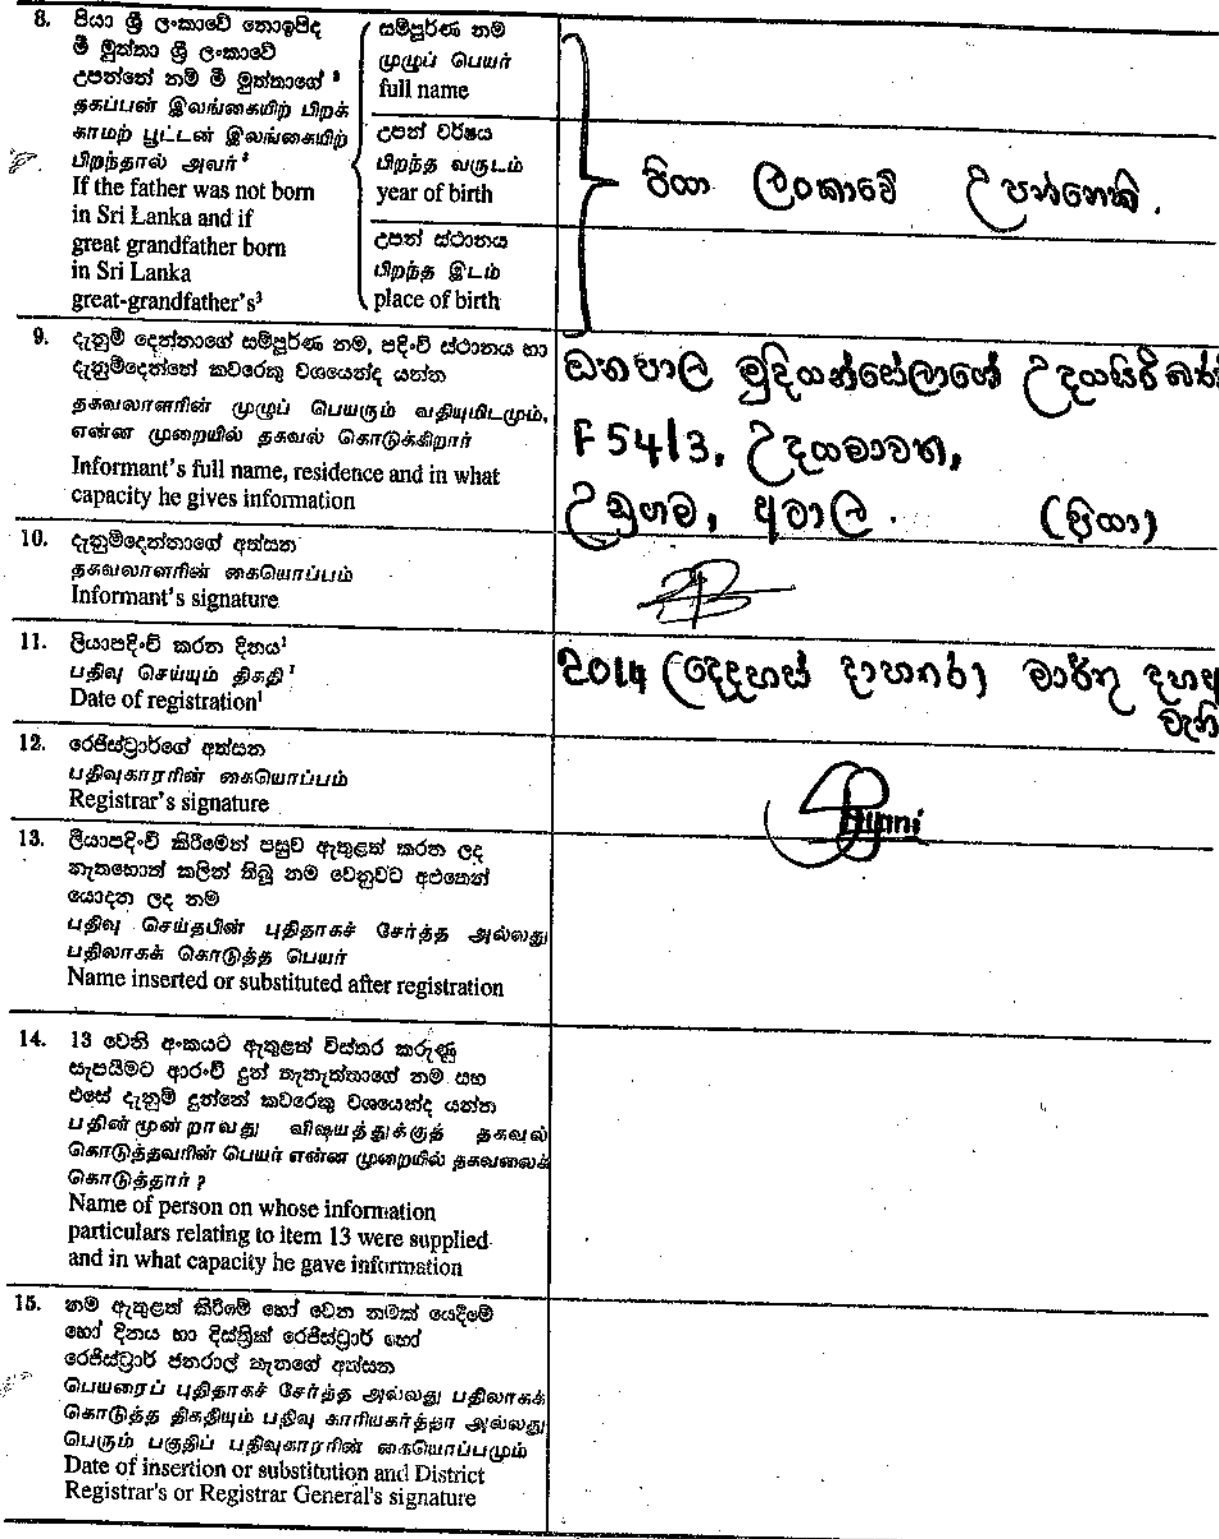 8. පියා ශ්‍රී ලංකාවේ නොඉපිද
මී මුත්තා ශ්‍රී ලංකාවේ
උපත්තේ නම් මී මුත්තාගේ ³
தகப்பன் இலங்கையிற் பிறக்
காமற் பூட்டன் இலங்கையிற்
பிறந்தால் அவர் ³
If the father was not born
in Sri Lanka and if
great grandfather born
in Sri Lanka
great-grandfather's³
සම්පූර්ණ නම
முழுப் பெயர்
full name
උපන් වර්ෂය
பிறந்த வருடம்
year of birth
උපන් ස්ථානය
பிறந்த இடம்
place of birth
පියා ලංකාවේ උපන්නෙකි.
9. දැනුම් දෙන්නාගේ සම්පූර්ණ නම, පදිංචි ස්ථානය හා
දැනුම්දෙන්නේ කවරෙකු වශයෙන්ද යන්න
தகவலாளரின் முழுப் பெயரும் வதியுமிடமும்,
என்ன முறையில் தகவல் கொடுக்கிறார்
Informant's full name, residence and in what
capacity he gives information
ධනපාල මුදියන්සේලාගේ
F 54/3, උදයමාවත,
උඩුගම, අමාල. (පියා)
10. දැනුම්දෙන්නාගේ අත්සන
தகவலாளரின் கையொப்பம்
Informant's signature
11. ලියාපදිංචි කරන දිනය¹
பதிவு செய்யும் திகதி ¹
Date of registration¹
2014 (දෙදහස් දාහතර) මාර්තු
වැනි
12. රෙජිස්ට්‍රාර්ගේ අත්සන
பதிவுகாரரின் கையொப்பம்
Registrar's signature
13. ලියාපදිංචි කිරීමෙන් පසුව ඇතුළත් කරන ලද
නැතහොත් කලින් තිබූ නම වෙනුවට අළුතෙන්
යොදන ලද නම
பதிவு செய்தபின் புதிதாகச் சேர்த்த அல்லது
பதிலாகக் கொடுத்த பெயர்
Name inserted or substituted after registration
14. 13 වෙනි අංකයට ඇතුළත් විස්තර කරුණු
සැපයීමට ආරංචි දුන් තැනැත්තාගේ නම සහ
එසේ දැනුම් දුන්නේ කවරෙකු වශයෙන්ද යන්න
பதின்மூன்றாவது விஷயத்துக்குத் தகவல்
கொடுத்தவரின் பெயர் என்ன முறையில் தகவலைக்
கொடுத்தார் ?
Name of person on whose information
particulars relating to item 13 were supplied
and in what capacity he gave information
15. නම ඇතුළත් කිරීමේ හෝ වෙන නමක් යෙදීමේ
හෝ දිනය හා දිස්ත්‍රික් රෙජිස්ට්‍රාර් හෝ
රෙජිස්ට්‍රාර් ජනරාල් තැනගේ අත්සන
பெயரைப் புதிதாகச் சேர்த்த அல்லது பதிலாகக்
கொடுத்த திகதியும் பதிவு காரியகர்த்தா அல்லது
பெரும் பகுதிப் பதிவுகாரரின் கையொப்பமும்
Date of insertion or substitution and District
Registrar's or Registrar General's signature